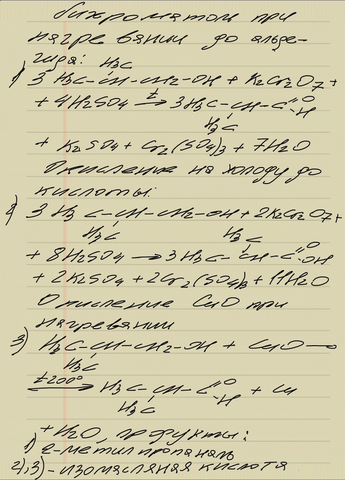 бихроматом при
нагревании до альде-
гида: H₃C
1) 3 H₃C-CH-CH₂-OH + K₂Cr₂O₇ +
+ 4H₂SO₄ →t 3H₃C-CH-C=O-H
H₃C
+ K₂SO₄ + Cr₂(SO₄)₃ + 7H₂O
Окисление на холоду до
кислоты:
2) 3 H₃C-CH-CH₂-OH + 2K₂Cr₂O₇ +
H₃C H₃C
+ 8H₂SO₄ → 3H₃C-CH-C=O-OH
+ 2K₂SO₄ + 2Cr₂(SO₄)₃ + 11H₂O
Окисление CuO при
нагревании
3) H₃C-CH-CH₂-OH + CuO —
H₃C
t 200° → H₃C-CH-C=O-H + Cu
H₃C
+ H₂O, продукты:
1) 2-метилпропаналь
2),3) - изомасляная кислота